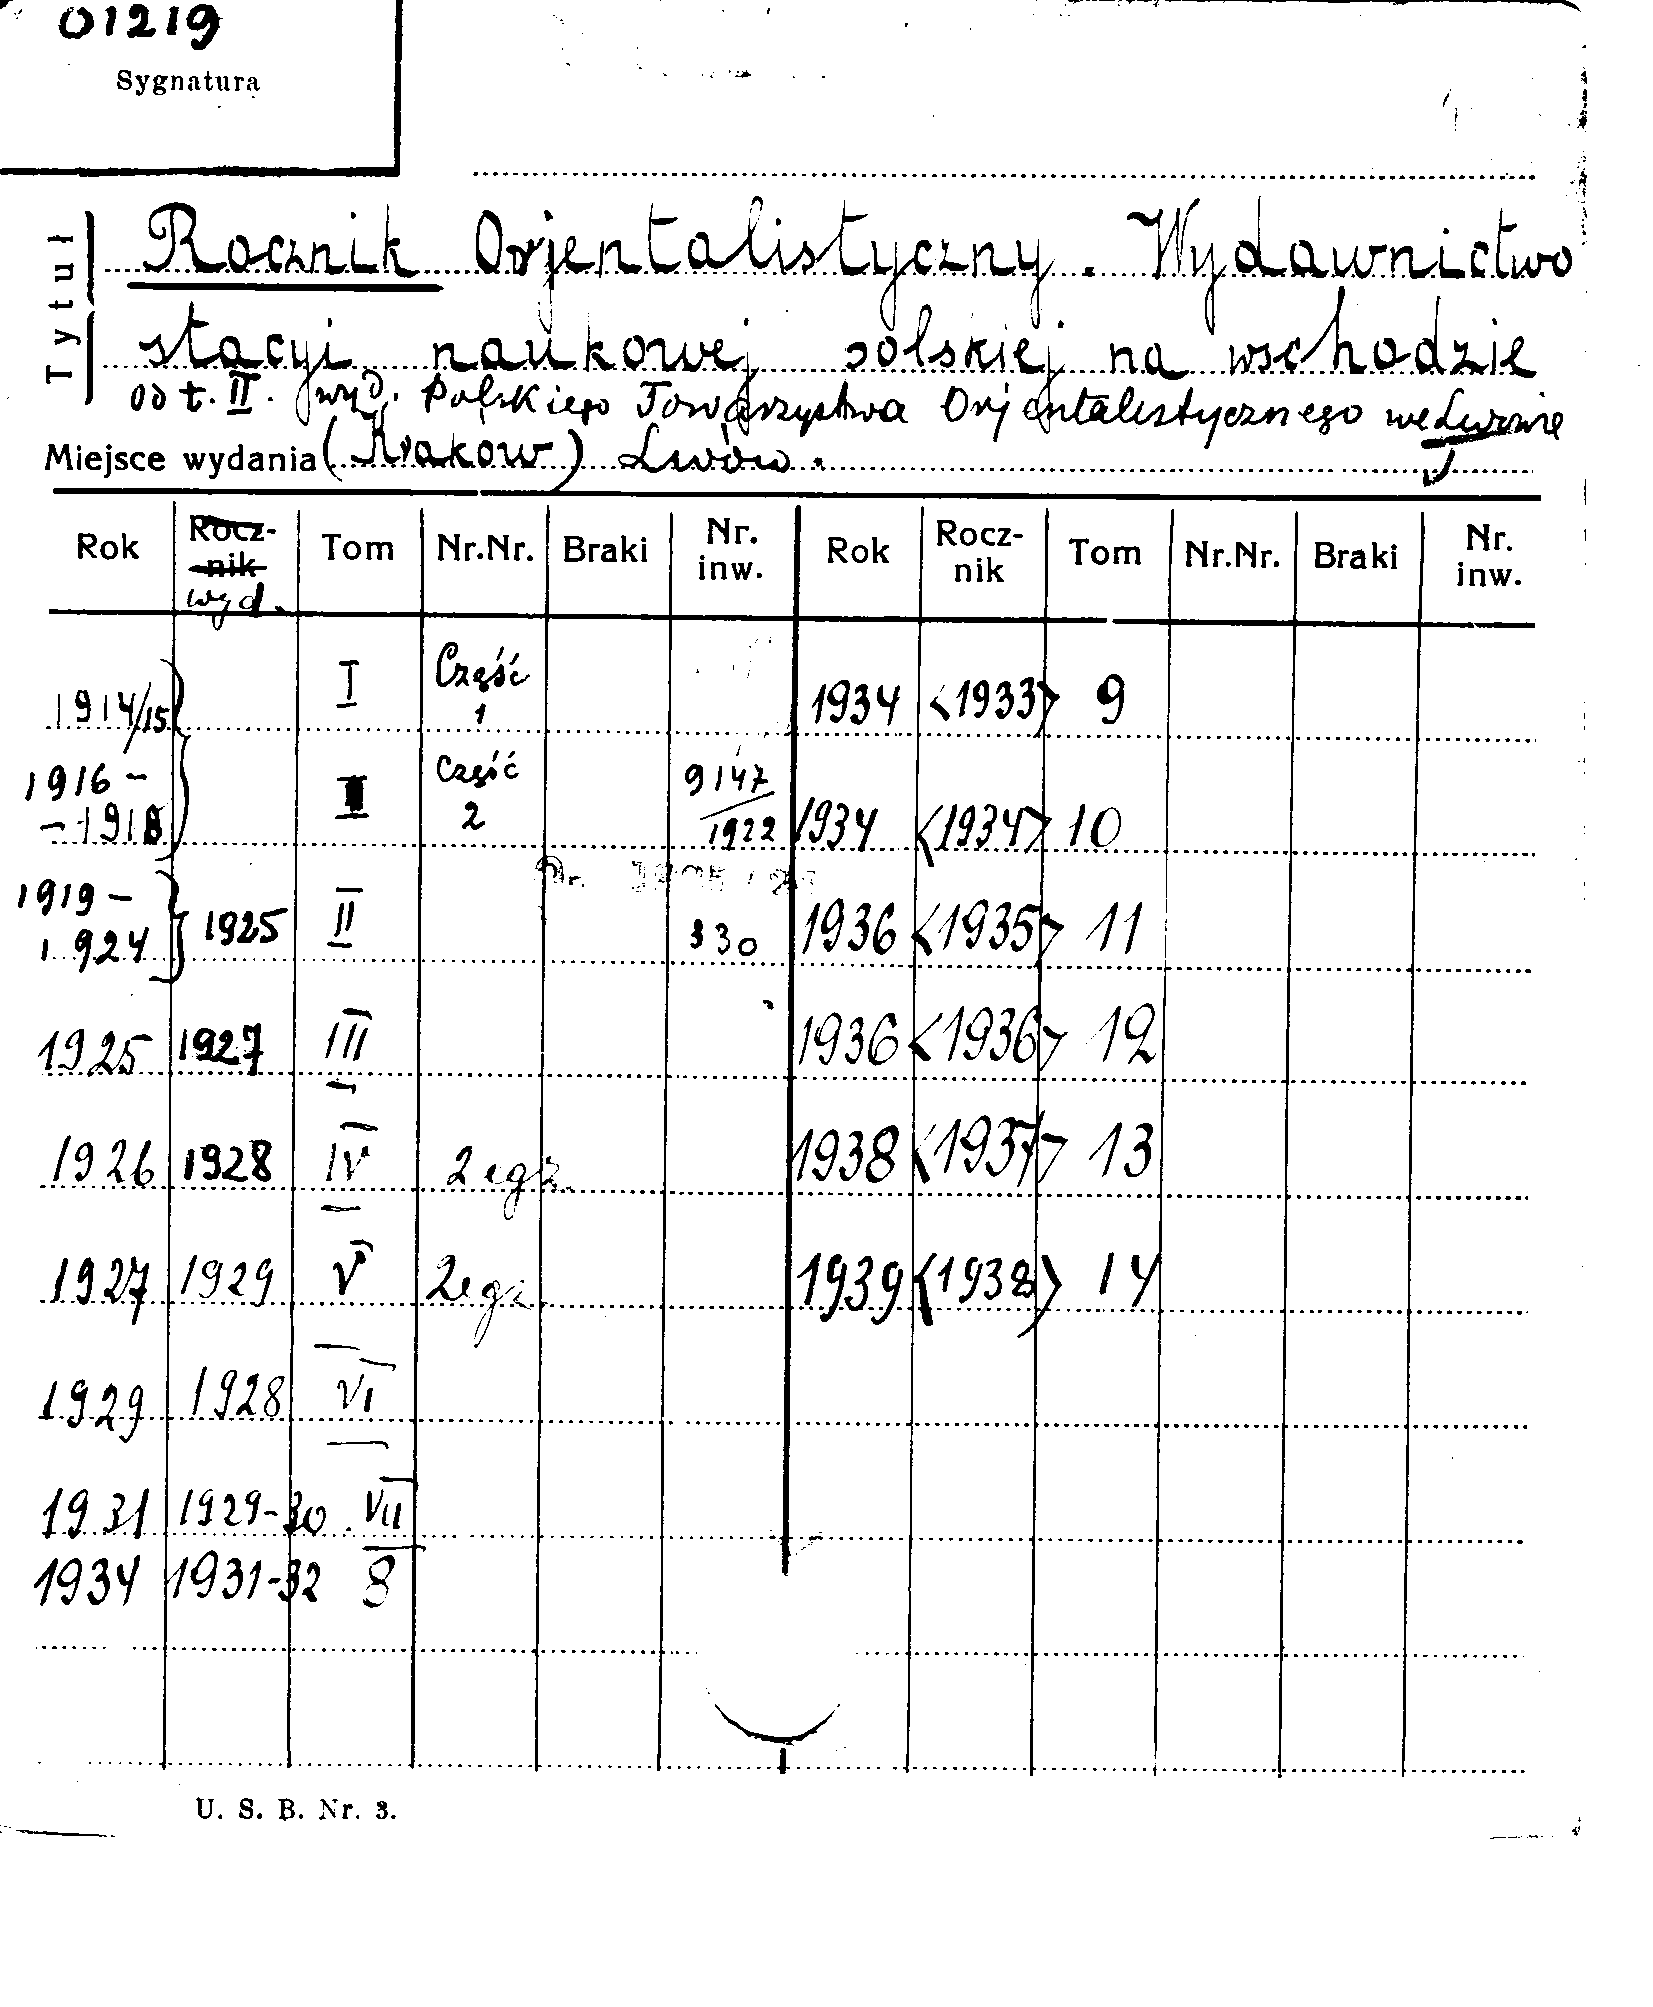 01219
Sygnatura
Tytuł
Rocznik Orjentalistyczny. Wydawnictwo
stacyi naukowej polskiej na wschodzie
od t. II. wyd. Polskiego Towarzystwa Orjentalistycznego we Lwowie
Miejsce wydania (Kraków) Lwów.
Rok Rocz-nik wyd. Tom Nr.Nr. Braki Nr. inw. Rok Rocz-nik Tom Nr.Nr. Braki Nr. inw.
1914/15 I Część 1 1934 <1933> 9
1916 - - 1918 I Część 2 9147/1922 1934 <1934> 10
1919 - 1924 1925 II 330 1936 <1935> 11
1925 1927 III 1936 <1936> 12
1926 1928 IV 2 egz. 1938 <1937> 13
1927 1929 V 2 egz. 1939 <1938> 14
1929 1928 VI
1931 1929-30 VII
1934 1931-32 8
U. S. B. Nr. 3.